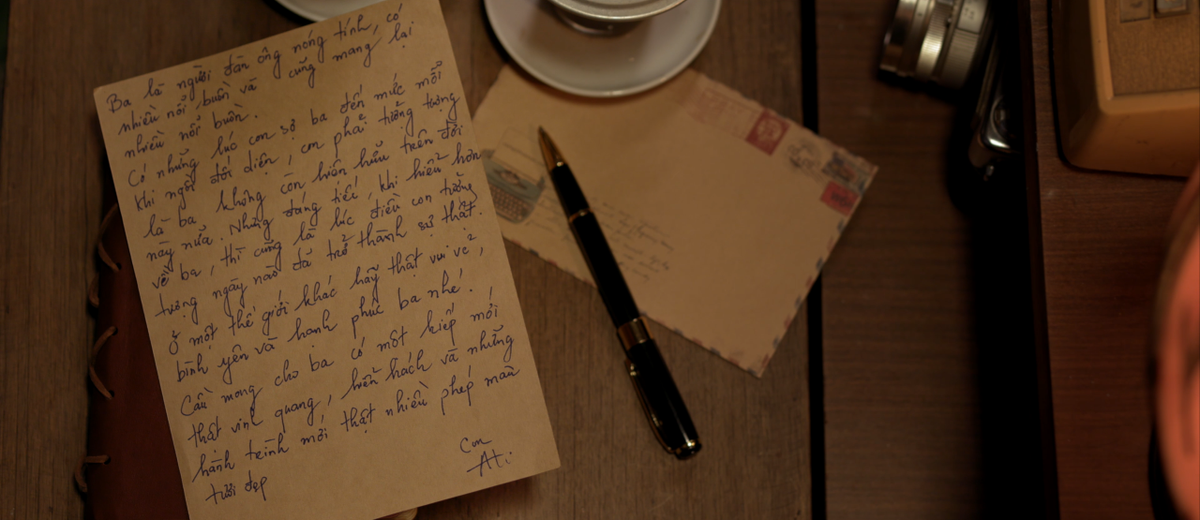 Ba là người đàn ông nóng tính, có
nhiều nổi buồn và cũng mang lại
nhiều nổi buồn.
Có những lúc con sợ ba đến mức mỗi
khi ngồi đối diện, con phải tưởng tượng
là ba không còn hiện hữu trên đời
này nữa. Nhưng đáng tiếc, khi hiểu hơn
về ba, thì cũng là lúc điều con tưởng
tượng ngày nào đã trở thành sự thật.
Ở một thế giới khác hãy thật vui vẻ,
bình yên và hạnh phúc ba nhé!
Cầu mong cho ba có một kiếp mới
thật vinh quang, hiển hách và những
hành trình mới thật nhiều phép màu
tươi đẹp
Con
Ati